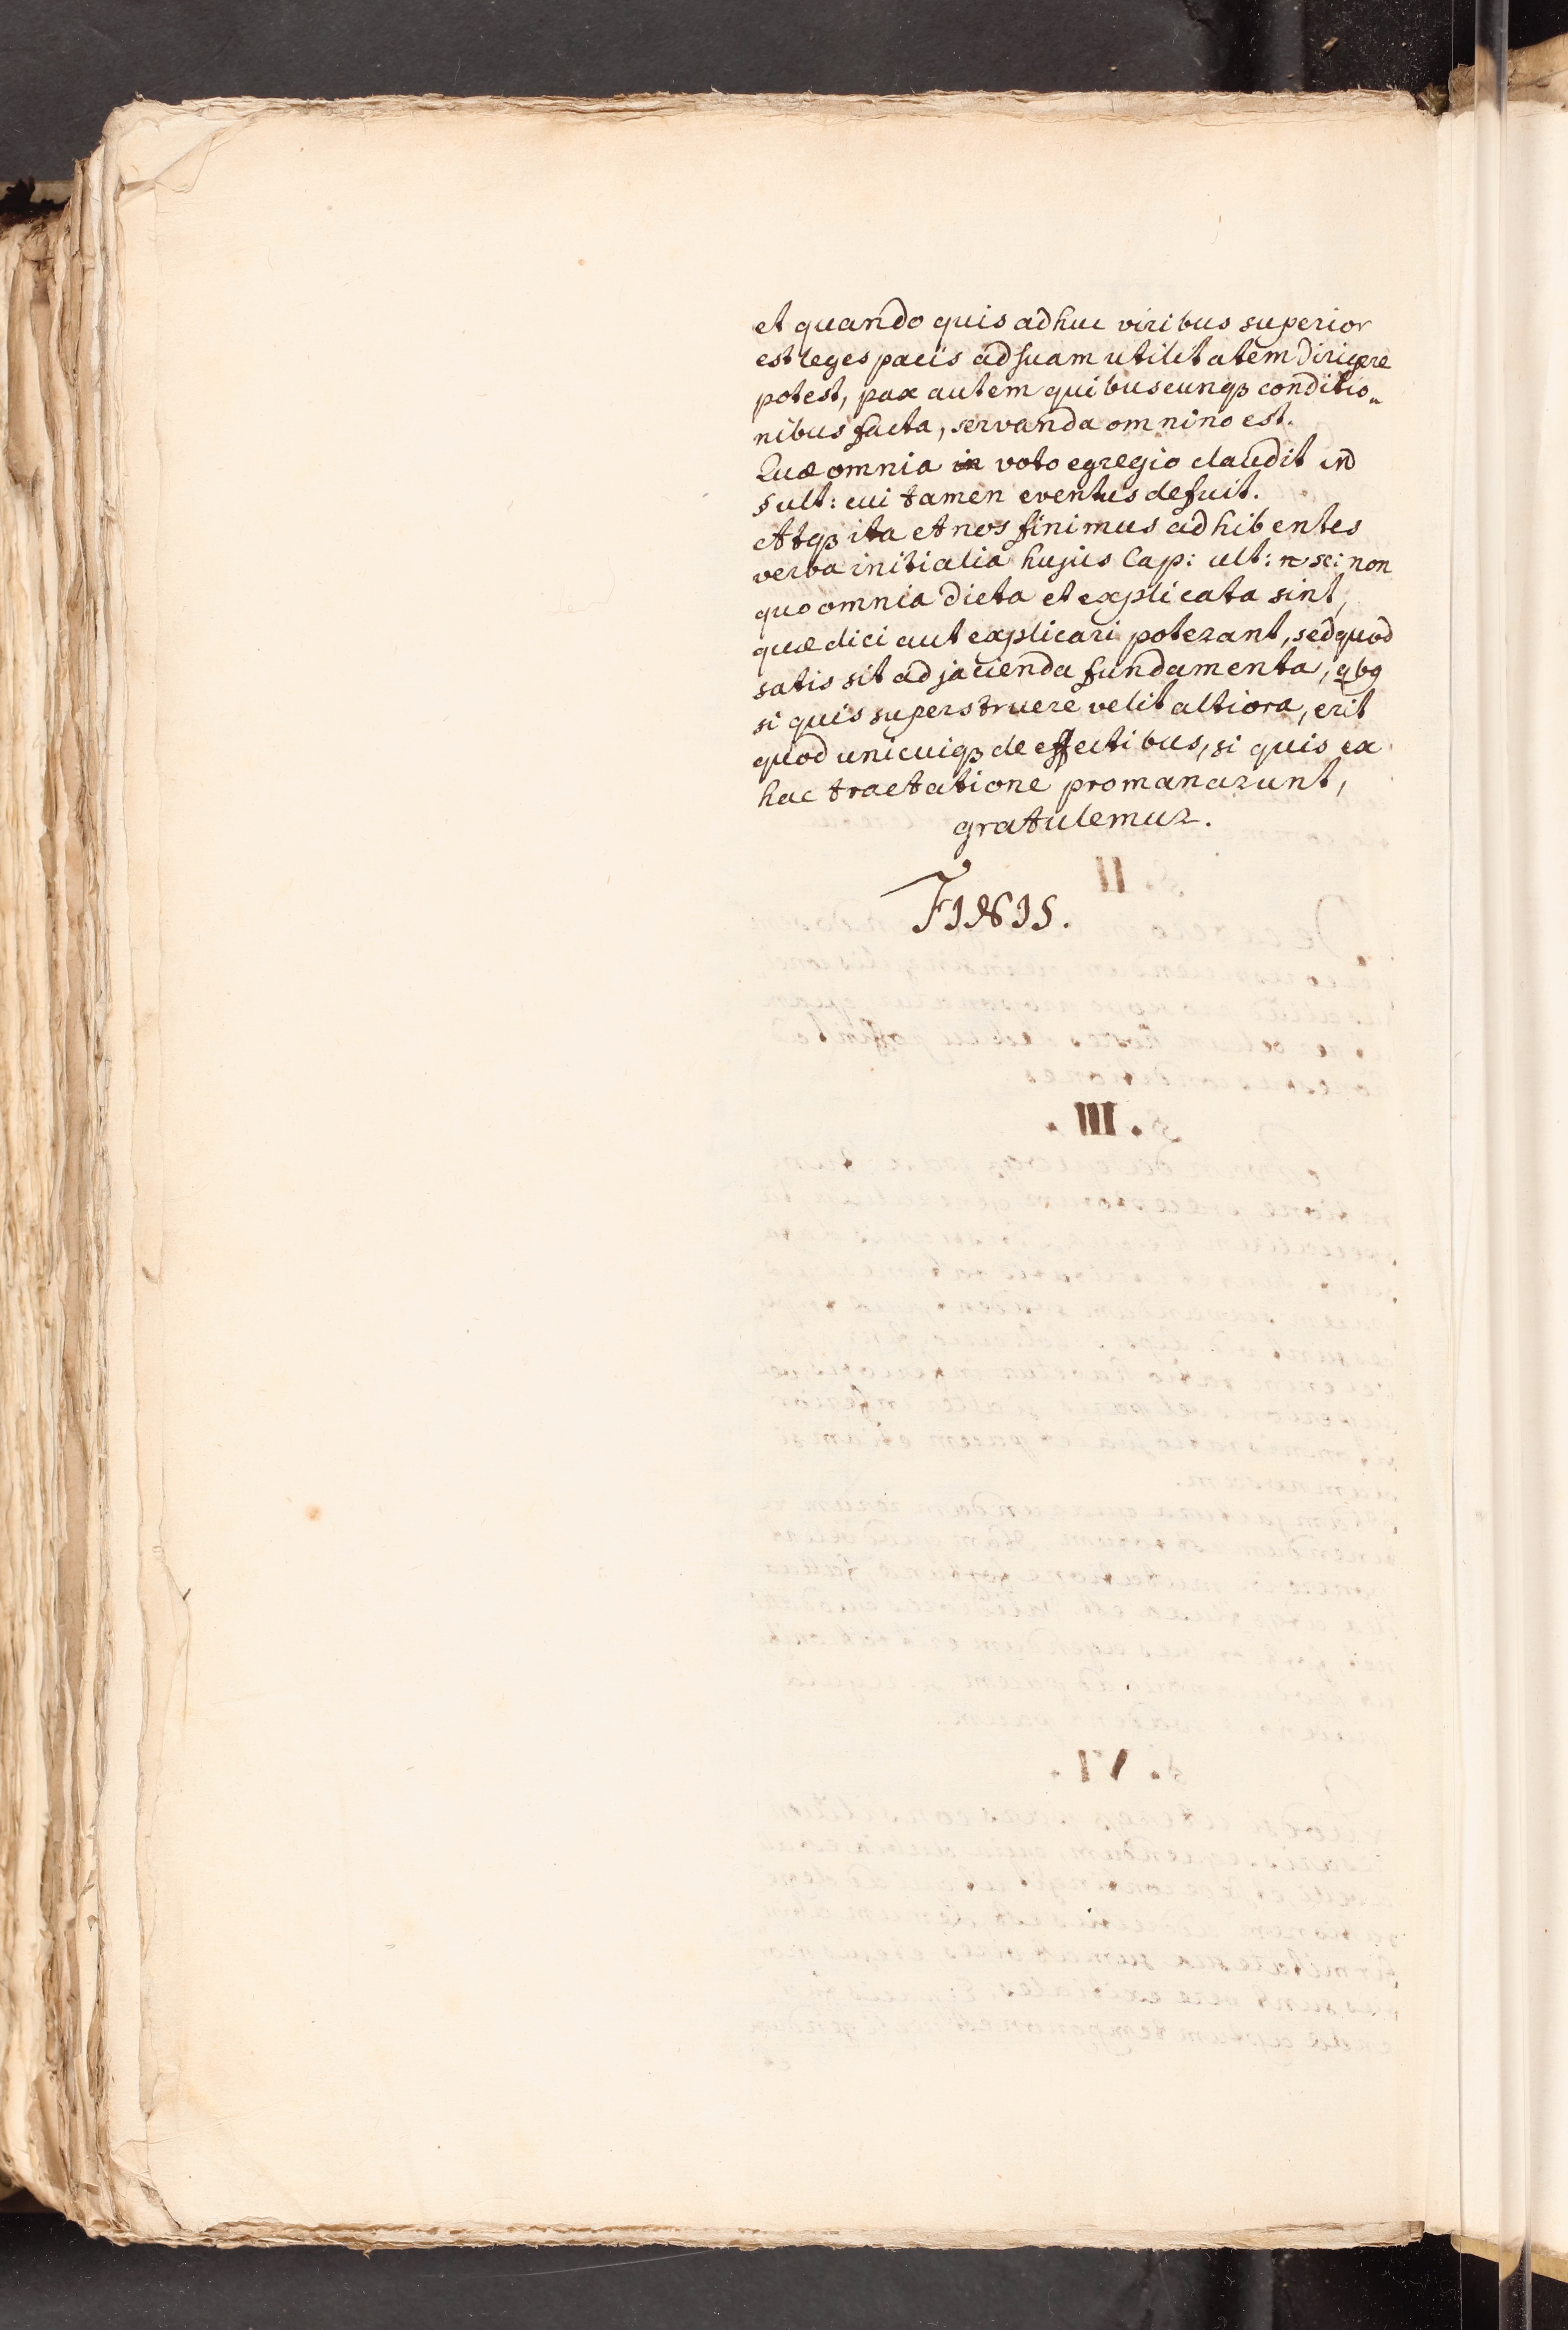 et quando quis adhuc viribus superior
est leges pacis ad suam utilitatem dirigere
potest, pax autem quibuscunqꝫ conditio„
nibus facta, servanda omnino est.
Quæ omnia in voto egregio claudit in
§ ult: cui tamen eventus defuit.
Atqꝫ ita et nos finimus adhibentes
verba initialia hujus Cap: ult: sc: non
quo omnia dicta et explicata sint,
quæ dici aut explicari poterant, sed quod
satis sit ad jacienda fundamenta, qbꝯ
si quis superstruere velit altiora, erit
quod unicuiqꝫ de effectibus, si quis ex
hac tractatione promanarunt,
gratulemur.
FINIS.